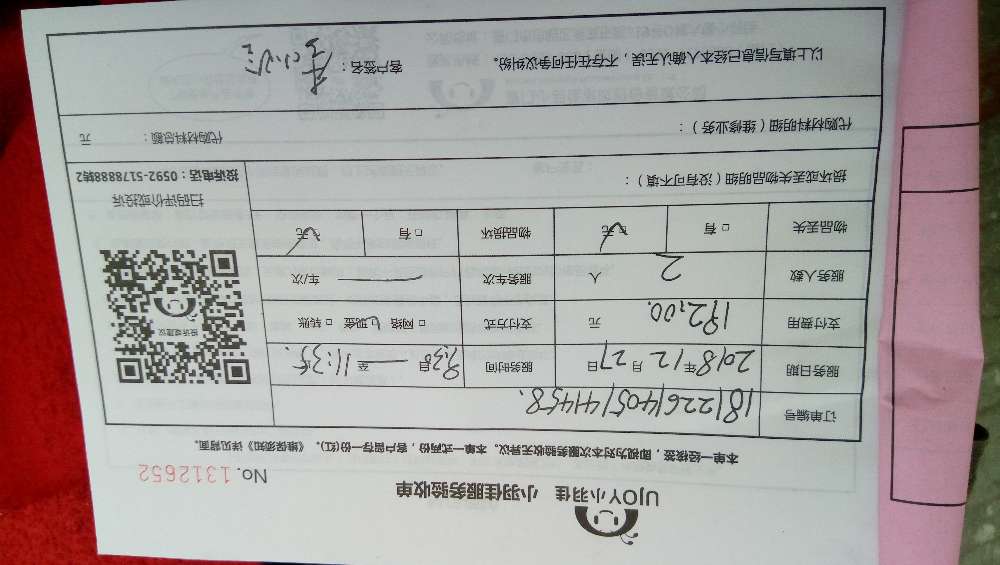 UJOY小羽佳 小羽佳服务验收单
No.1312652
本单一经核签，即视为对本次服务验收无异议。本单一式两份，客户留存一份(红)。《维保须知》详见背面。
订单编号 181226140514114458.
服务日期 2018年12月27日 服务时间 9:30自 — 至 11:35.
支付费用 192.00. 元 支付方式 □ 网络 □ 现金 □ 转账
服务人数 2 人 服务车次 — 车/次
物品丢失 □ 有 □ 无 物品损坏 □ 有 □ 无
投诉或建议
扫码评价或投诉
投诉电话：0592-5178888转2
损坏或丢失物品明细（没有可不填）：
代购材料明细（维修业务）： 代购材料总额： 元
以上填写信息已经本人确认无误，不存在任何争议纠纷。 客户签名：